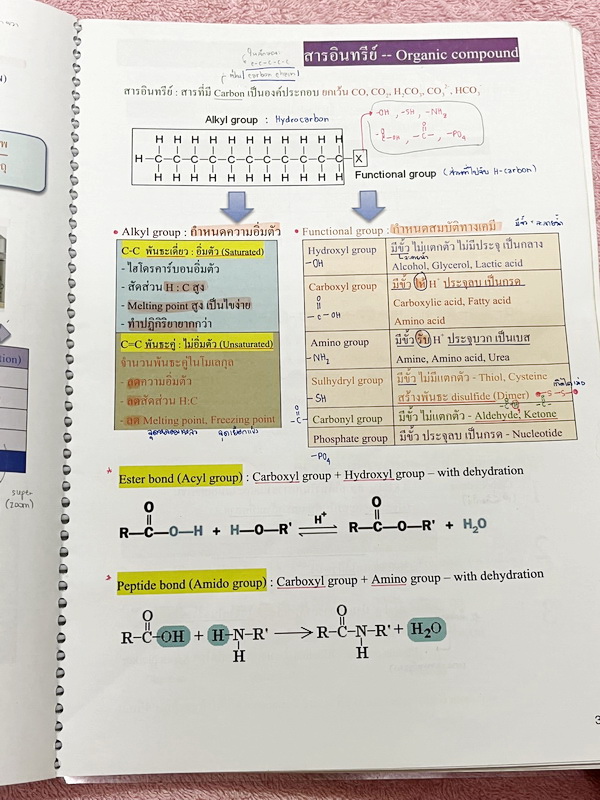 สารอินทรีย์ -- Organic compound
C-C-C-C-C
carbon chain
สารอินทรีย์ : สารที่มี Carbon เป็นองค์ประกอบ ยกเว้น CO, CO₂, H₂CO₃, CO₃²⁻, HCO₃⁻
-OH , -SH , -NH₂
Alkyl group : Hydrocarbon
O O
-C-OH , -C- , -PO₄
H H H H H H H H H H
H-C-C-C-C-C-C-C-C-C-C-X
H H H H H H H H H H
Functional group
• Alkyl group : กำหนดความอิ่มตัว
C-C พันธะเดี่ยว : อิ่มตัว (Saturated)
- ไฮโดรคาร์บอนอิ่มตัว
- สัดส่วน H : C สูง
- Melting point สูง เป็นไขง่าย
- ทำปฏิกิริยายากกว่า
C=C พันธะคู่ : ไม่อิ่มตัว (Unsaturated)
จำนวนพันธะคู่ในโมเลกุล
- ลดความอิ่มตัว
- ลดสัดส่วน H:C
- ลด Melting point, Freezing point
• Functional group : กำหนดสมบัติทางเคมี
Hydroxyl group มีขั้ว ไม่แตกตัว ไม่มีประจุ เป็นกลาง
-OH Alcohol, Glycerol, Lactic acid
Carboxyl group มีขั้ว ให้ H⁺ ประจุลบ เป็นกรด
O
-C-OH Carboxylic acid, Fatty acid
Amino acid
Amino group มีขั้ว รับ H⁺ ประจุบวก เป็นเบส
-NH₂ Amine, Amino acid, Urea
Sulhydryl group มีขั้ว ไม่มีแตกตัว - Thiol, Cysteine
-SH สร้างพันธะ disulfide (Dimer) -S-S-
O
-C- Carbonyl group มีขั้ว ไม่แตกตัว - Aldehyde, Ketone
Phosphate group มีขั้ว ประจุลบ เป็นกรด - Nucleotide
-PO₄
Ester bond (Acyl group) : Carboxyl group + Hydroxyl group – with dehydration
O O
R-C-O-H + H-O-R' H⁺ ⇌ R-C-O-R' + H₂O
Peptide bond (Amido group) : Carboxyl group + Amino group – with dehydration
O O
R-C-OH + H-N-R' ⟶ R-C-N-R' + H₂O
H H
super
(zoom)
3